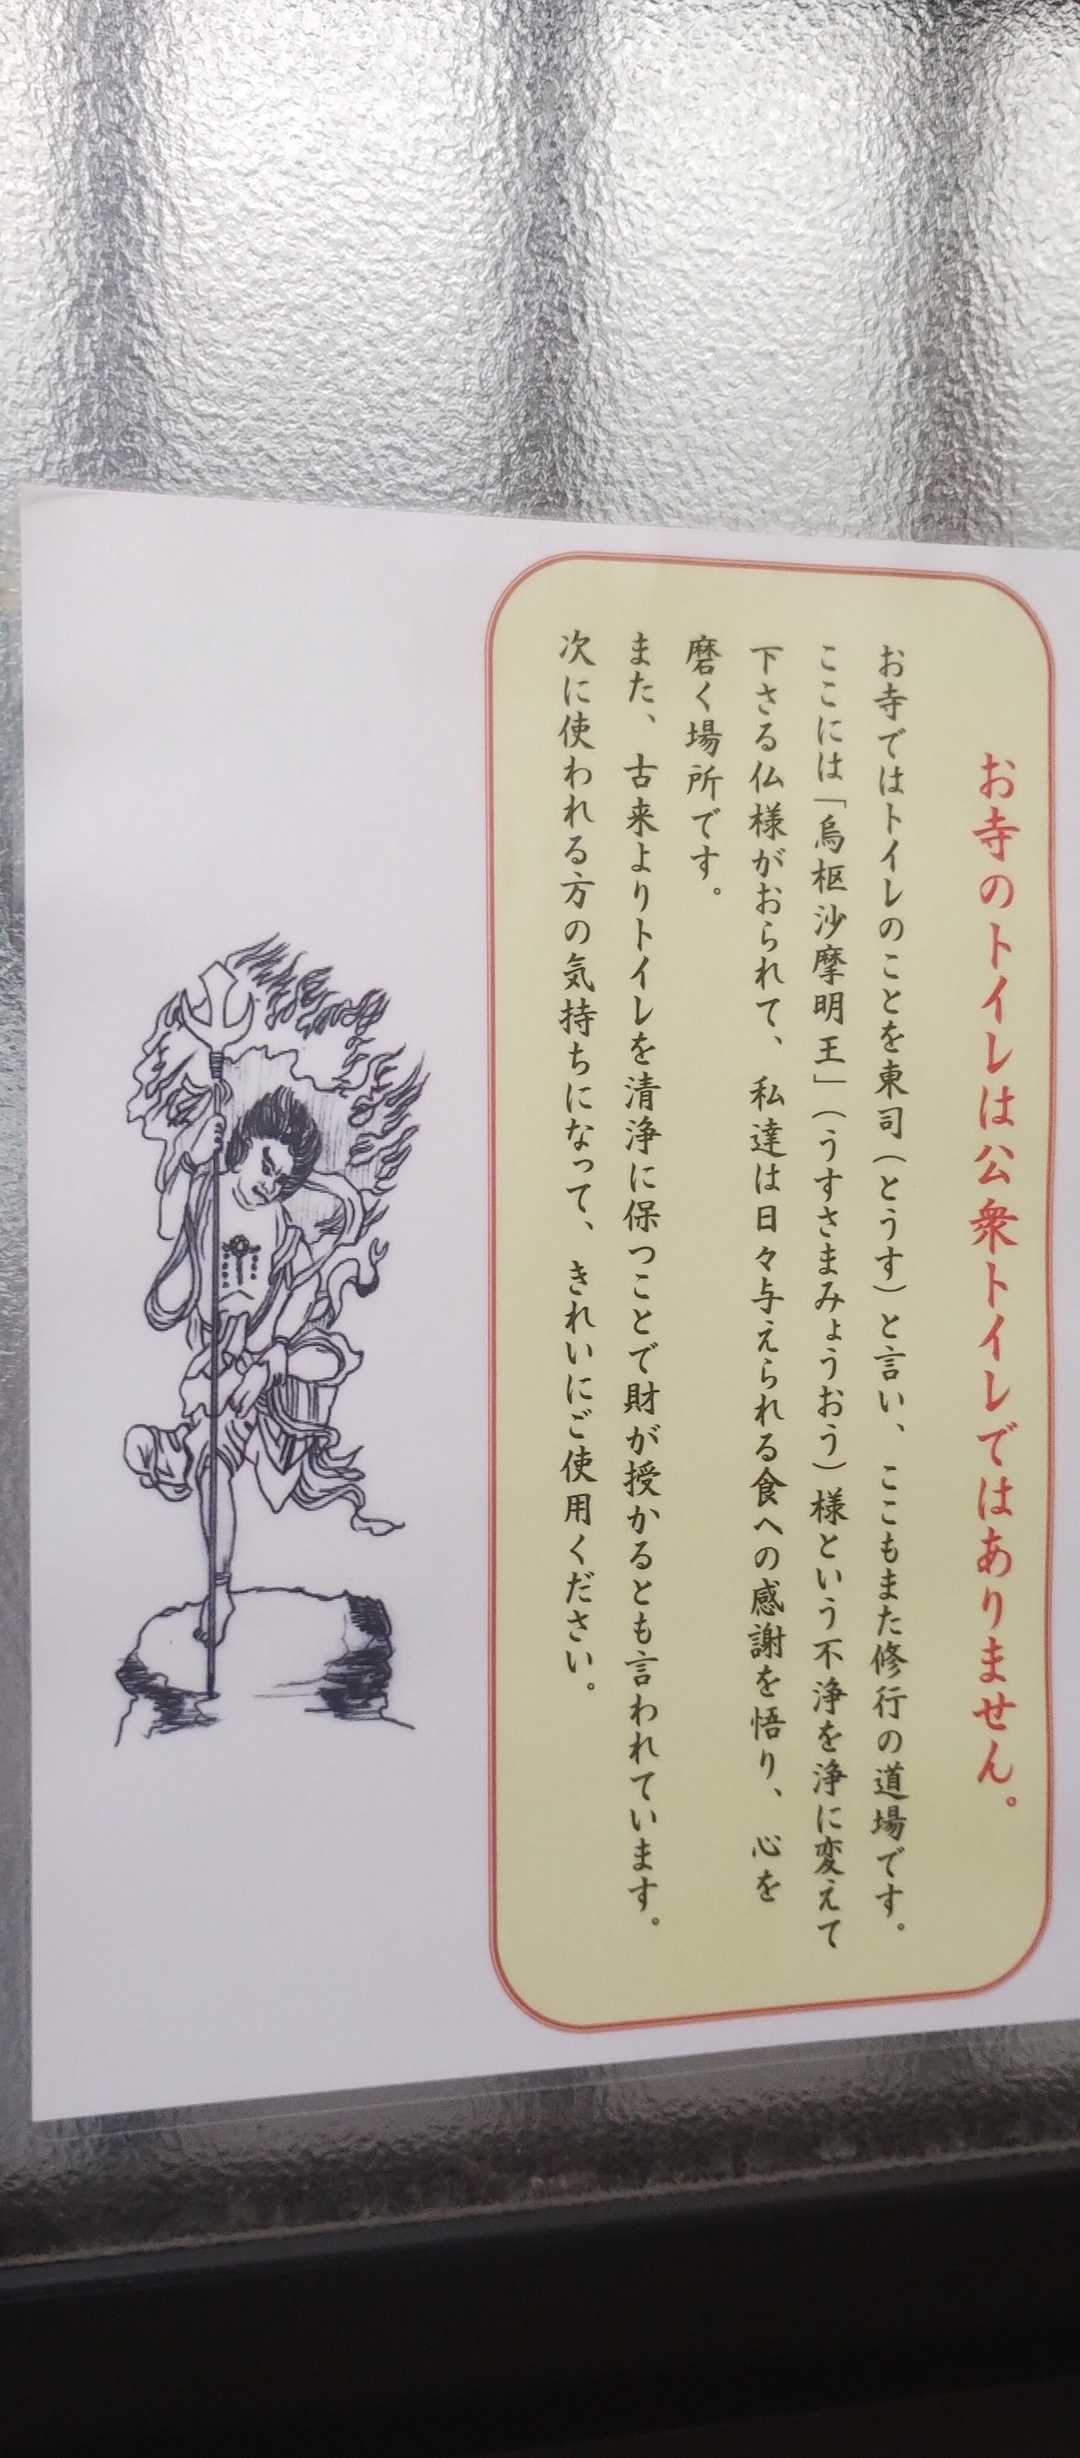 お寺のトイレは公衆トイレではありません。
お寺ではトイレのことを東司（とうす）と言い、ここもまた修行の道場です。
ここには「烏枢沙摩明王」（うすさまみょうおう）様という不浄を浄に変えて
下さる仏様がおられて、私達は日々与えられる食への感謝を悟り、心を
磨く場所です。
また、古来よりトイレを清浄に保つことで財が授かるとも言われています。
次に使われる方の気持ちになって、きれいにご使用ください。